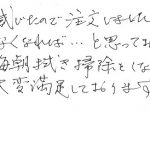 感じたので注文しました
なくなれば…と思ってお
毎朝拭き掃除をしな
大変満足しております